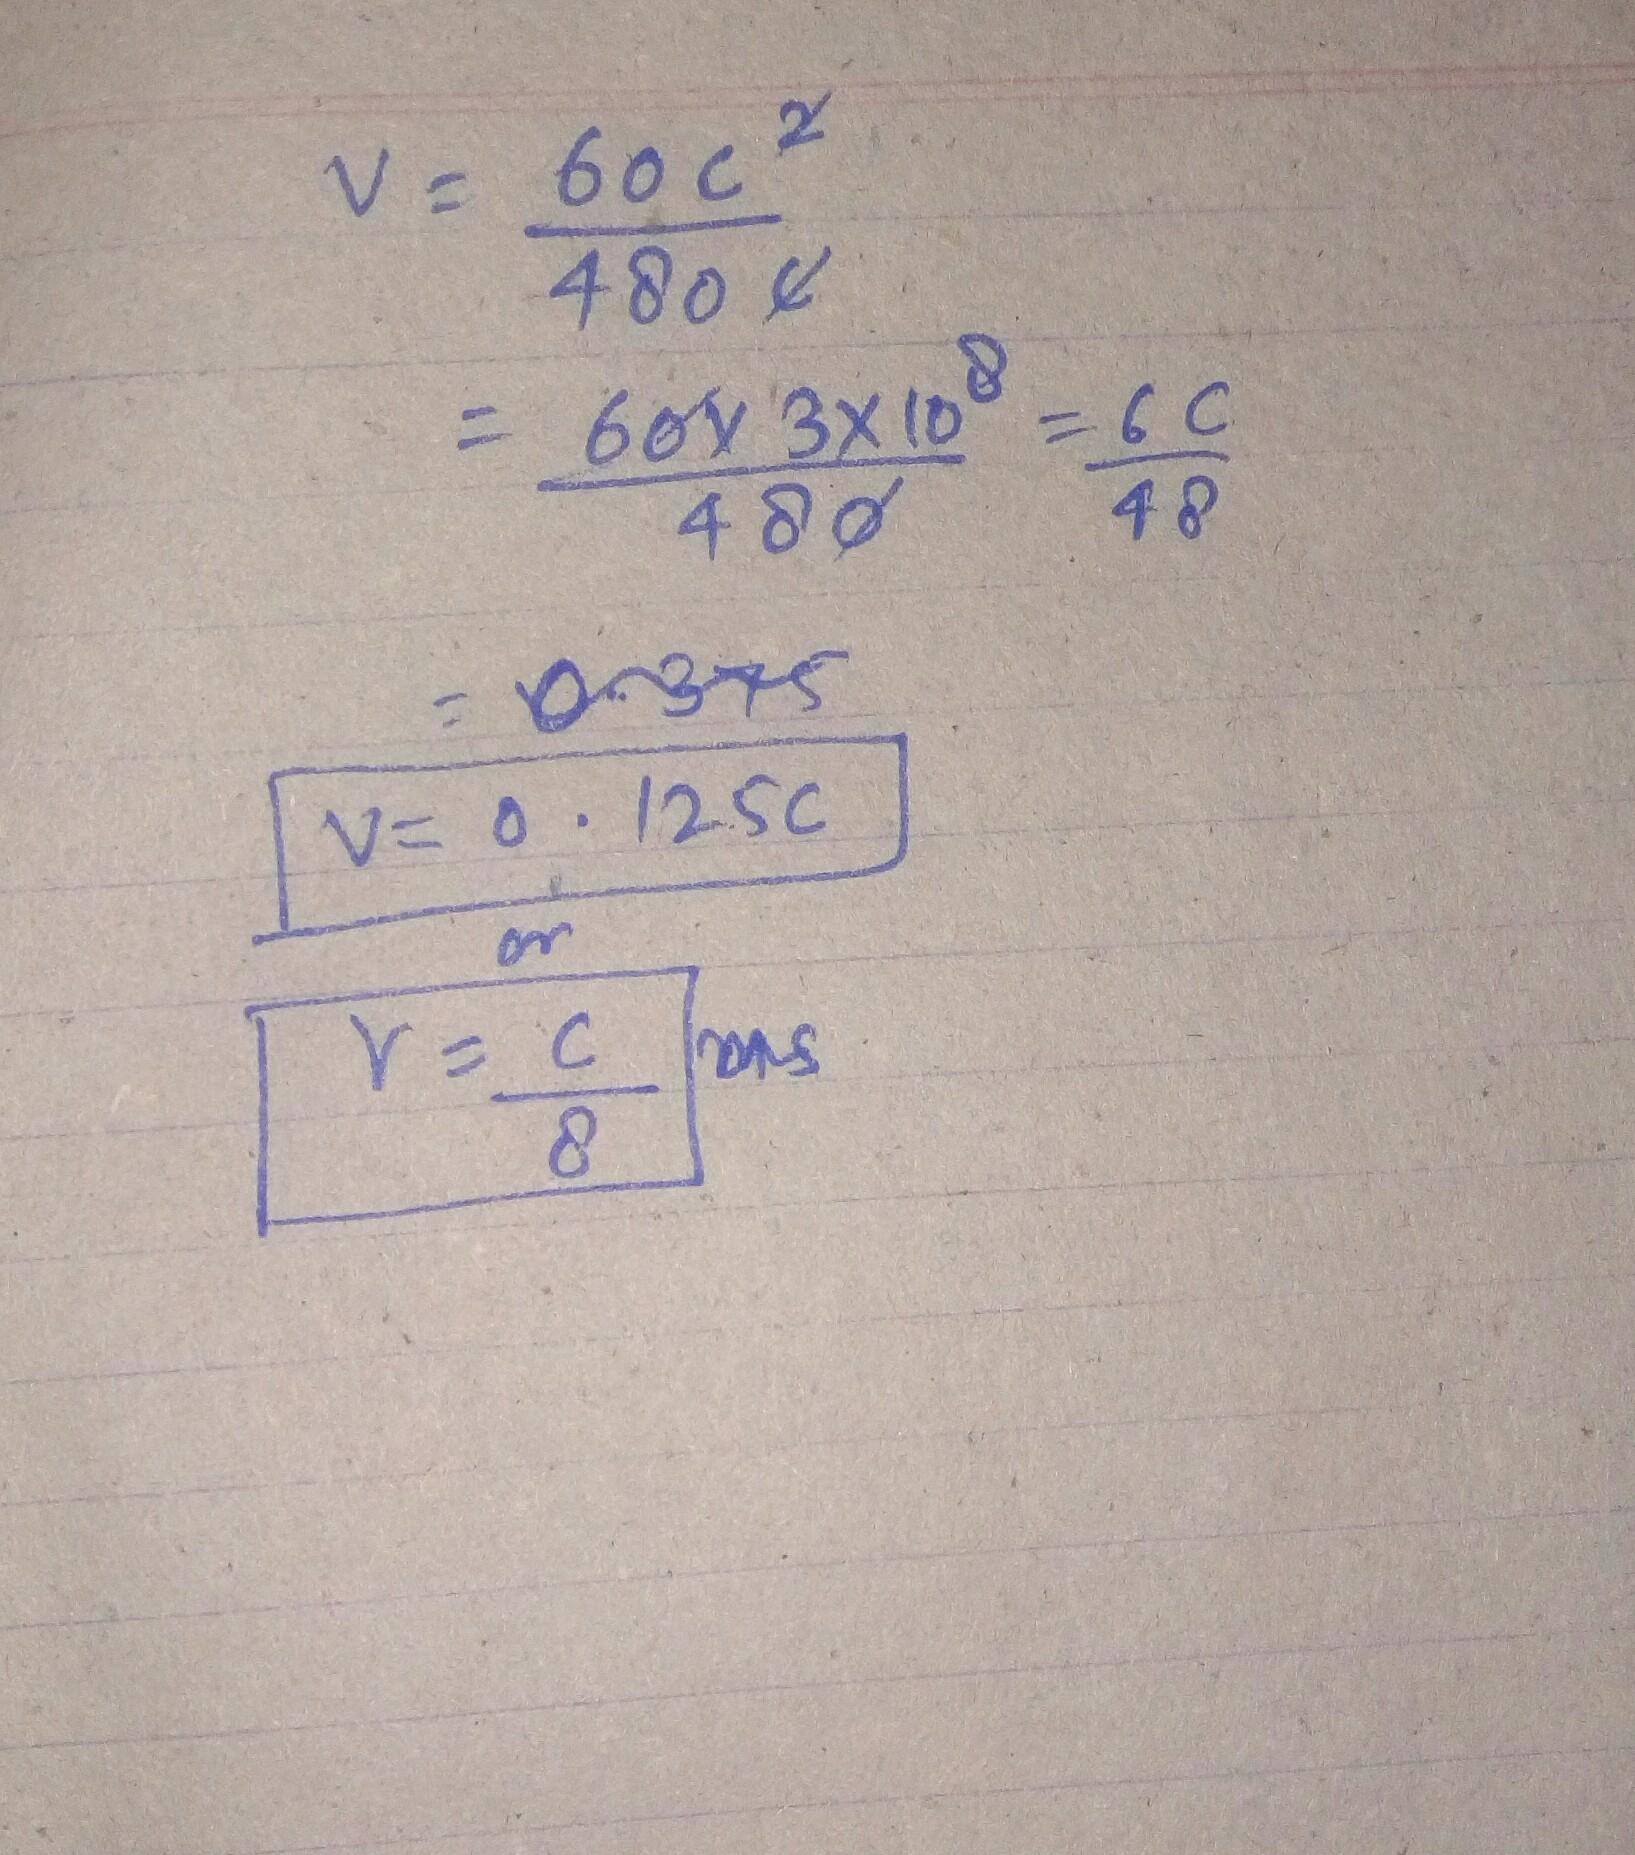 V = 60c²
480c
= 60x 3x10⁸ = 6C
480 48
= 0.375
V= 0.125C
or
V = C
8
ans